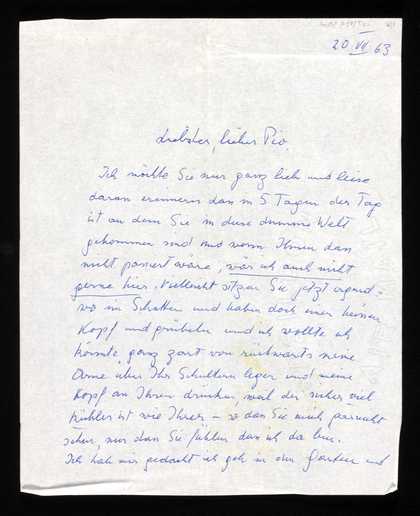 20 VII 63
Liebster, lieber Pio,
Ich möchte Sie nur ganz lieb und leise
daran erinnern dass in 5 Tagen der Tag
ist an dem Sie in diese dumme Welt
gekommen sind und wenn Ihnen das
nicht passiert wäre, wär ich auch nicht
gerne hier. Vielleicht sitzen Sie jetzt irgend-
wo im Schatten und haben doch einen heissen
Kopf und grübeln und ich wollte ich
könnte ganz zart von rückwärts meine
Arme über Ihr Schultern legen und meine
Kopf an Ihren drücken, weil der sicher viel
kühler ist wie Ihrer – so dass Sie mich gar nicht
sehen, nur dass Sie fühlen dass ich da bin.
Ich hab mir gedacht ich geh in den Garten und